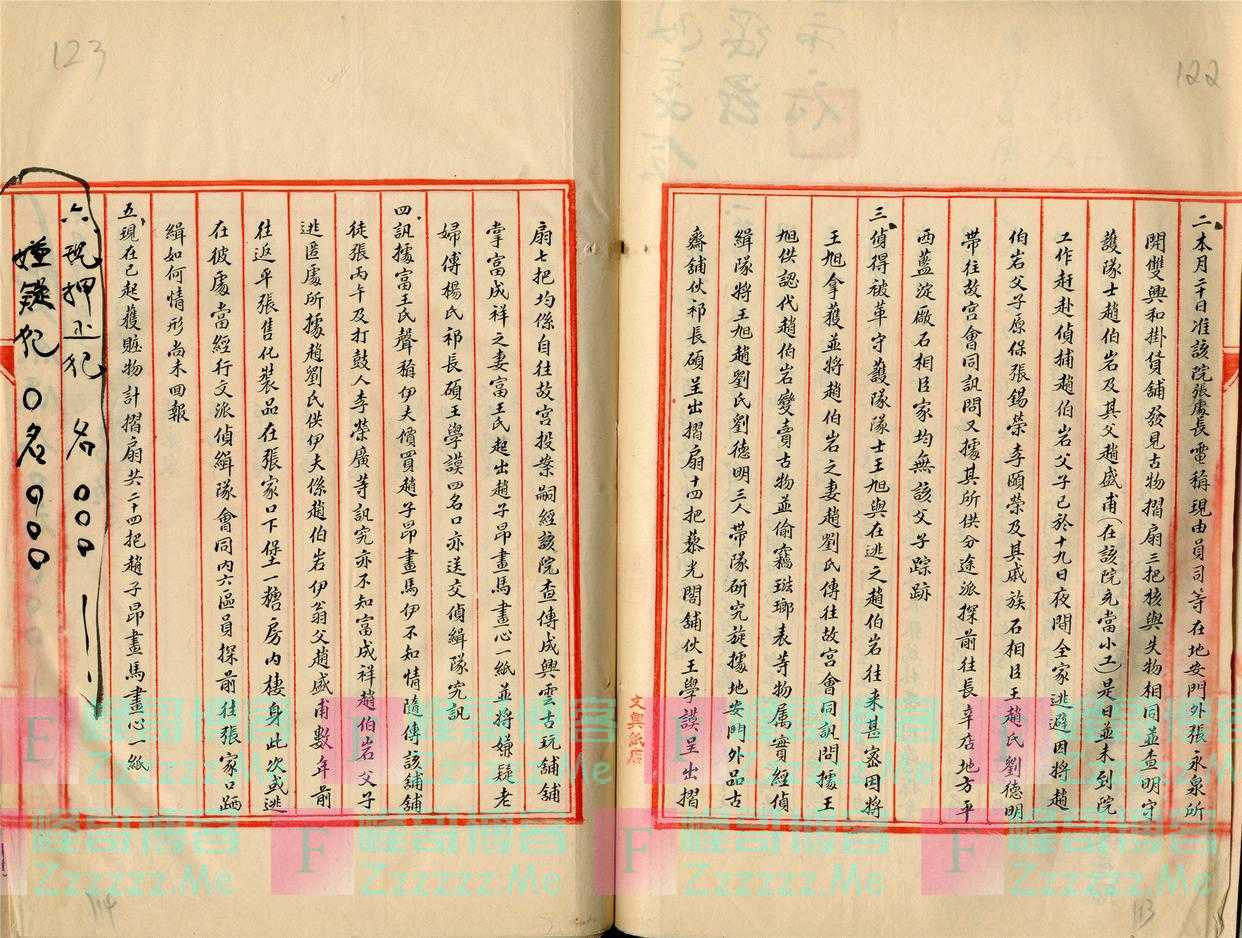 122
二、本月二十日准該院張處長電稱現由員司等在地安門外張永泉所
開雙興和掛貨舖發見古物摺扇三把核與失物相同並查明守
護隊士趙伯岩及其父趙盛甫(在該院充當小工)是日並未到院
工作赶赴偵捕趙伯岩父子已於十九日夜間全家逃避因將趙
伯岩父子原保張錫榮李頤榮及其戚族石相臣王趙氏劉德明
帶往故宮會同訊問又據其所供分途派探前往長辛店地方平
西藍淀廠石相臣家均無該父子踪跡
三、偵得被革守護隊隊士王旭與在逃之趙伯岩往来甚密因將
王旭拿獲並將趙伯岩之妻趙劉氏傳往故宮會同訊問據王
旭供認代趙伯岩變賣古物並偷竊琺瑯表等物属實經偵
緝隊將王旭趙劉氏劉德明三人帶隊研究旋據地安門外品古
齋舖伙祁長碩呈出摺扇十四把藜光閣舖伙王學謨呈出摺
文興紙店
123
扇七把均係自往故宮投案嗣經該院查傳成興雲古玩舖舖
掌富成祥之妻富王氏起出趙子昂畫馬畫心一紙並將嫌疑老
婦傅楊氏祁長碩王學謨四名口亦送交偵緝隊究訊
四、訊據富王氏聲稱伊夫價買趙子昂畫馬伊不知情隨傳該舖舖
徒張丙午及打鼓人李榮廣等訊究亦不知富成祥趙伯岩父子
逃匿處所據趙劉氏供伊夫係趙伯岩伊翁父趙盛甫數年前
往返平張售化裝品在張家口下堡土糖房内棲身此次或逃
在彼處當經行文派偵緝隊會同内六區員探前往張家口跴
緝如何情形尚未回報
五、現在已起獲贓物計摺扇共二十四把趙子昂畫馬畫心一紙
六、現押正犯 名〇〇〇
嫌疑犯〇名〇〇〇
峰哥博客
Zzzzzz.Me
F
峰哥博客
Zzzzzz.Me
F
峰哥博客
Zzzzzz.Me
F
峰哥博客
Zzzzzz.Me
114
113